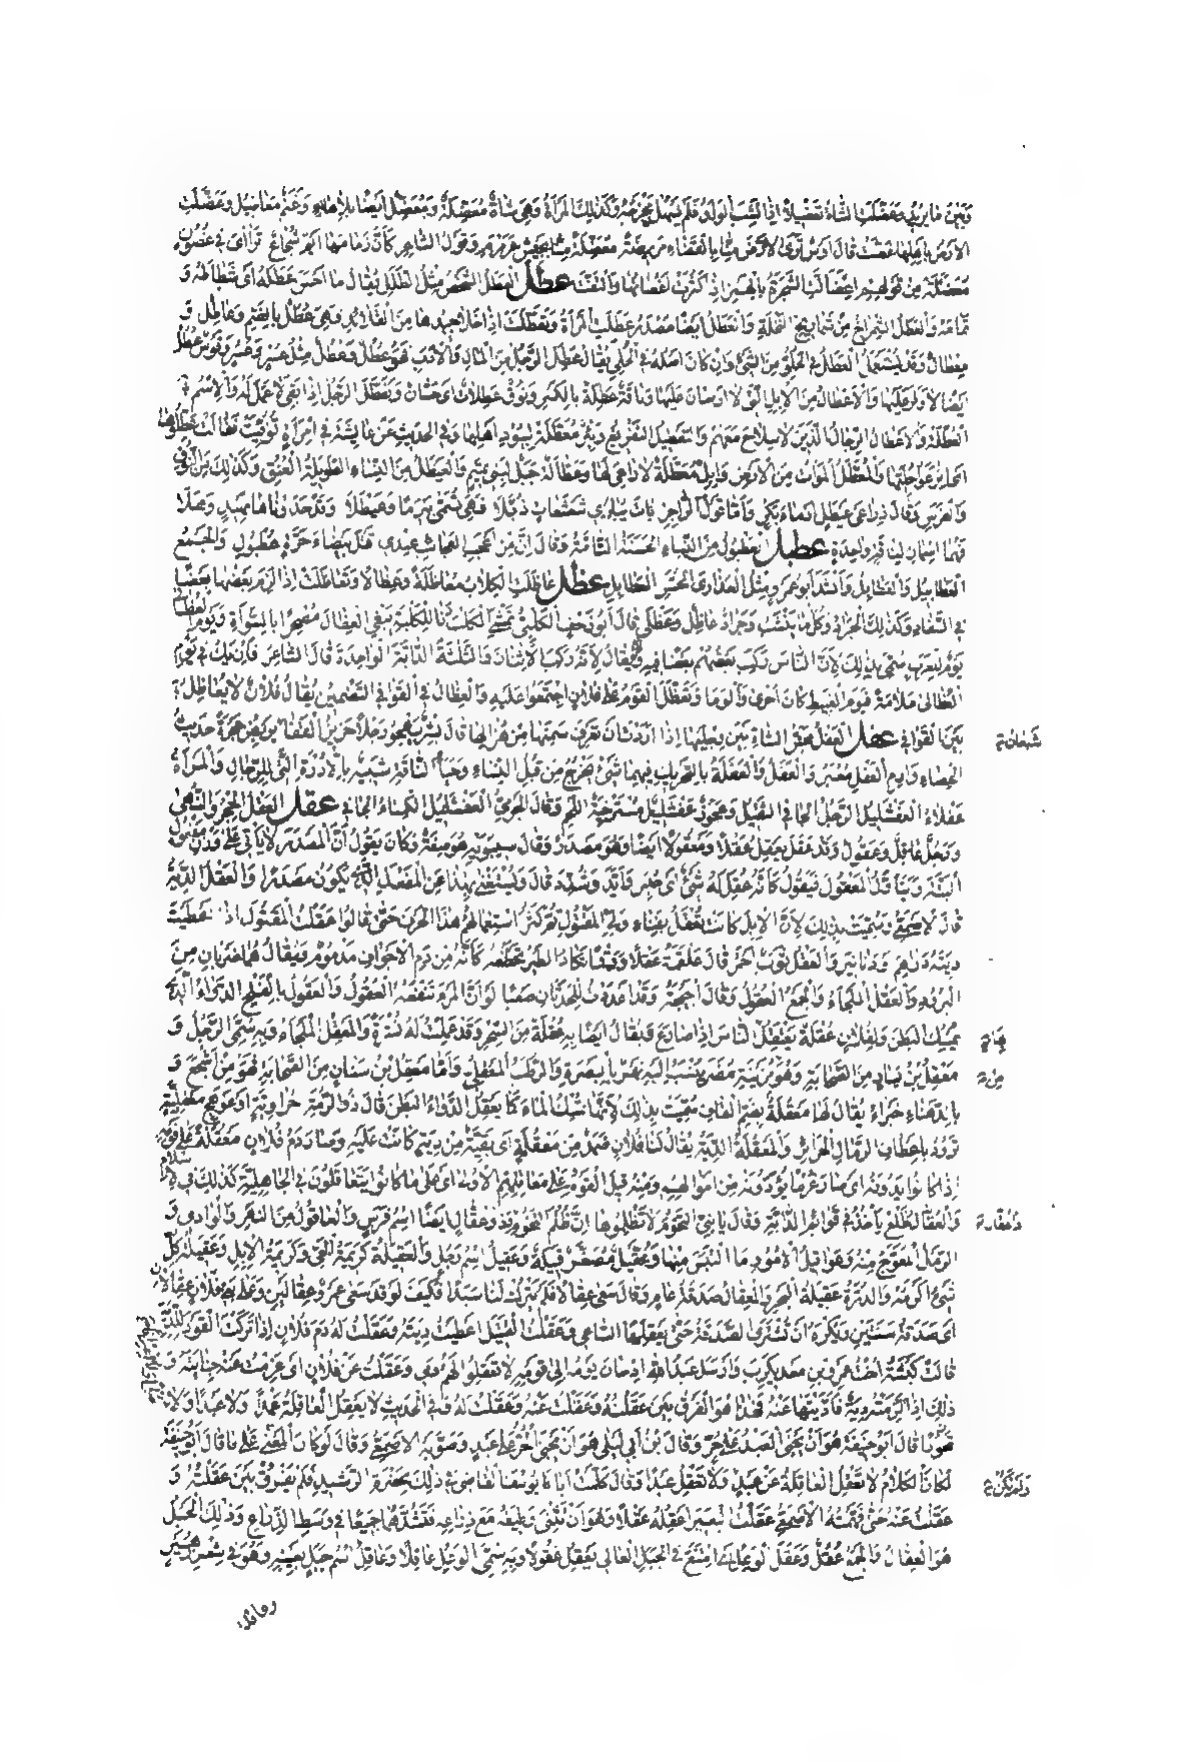 وبين ما يريد وعضلت الشاة تعضيلا اذا نشب الولد فلم يسهل مخرجه وكذلك المرأة وهي شاة معضلة ومعضل ايضا بلا هاء وغنم معاضيل وعضلت
الارض باهلها غصت قال اوس ترى الارض منا بالفضاء مريضة معضلة منا بجيش عرمرم وقول الشاعر كأن زمامها ايم شجاع تراأى في غصون
معضئلة من قولهم اعضألت الشجرة بالهمز اذا كثرت اغصانها والتفت عطل العطل الشخص مثل الطلل يقال ما احسن عطله اى شطاطه و
تمامه والعطل الشمراخ من شماريخ النخلة والعطل ايضا مصدر عطلت المرأة وتعطلت اذا خلا جيدها من القلائد وهي عطل بالضم وعاطل و
معطال وقد يستعمل العطل في الخلو من الشئ وان كان اصله في الحلي يقال عطل الرجل من المال والادب فهو عطل وعطل مثل عسر وعسر وقوس عطل
ايضا لا وتر عليها والاعطال من الابل التي لا ارسان عليها وناقة عطلة بالكسر ونوق عطلات اى حسان وتعطل الرجل اذا بقي لا عمل له والاسم
العطلة والاعطال الرجال الذين لا سلاح معهم والتعطيل التفريغ وبئر معطلة لبيود اهلها وفي الحديث عن عائشة في امرأة توفيت فقالت عطلوها
اى انزعوا حليها والمعطل الموات من الارض وابل معطلة لا راعي لها وعطالة جبل لبني تميم والعيطل من النساء الطويلة العنق وكذلك من النوق
والفرس وقال ذراعي عيطل ادماء بكر واما قول الراجز بات يباري شعشعات ذبلا فهي تسمى زمزما وعيطلا وقد حدوناها بهيد وهلا
فهما اسمان لناقة واحدة عطبل العطبول من النساء الحسنة التامة وقال ان من اعجب العجائب عندي قتل بيضاء حرة عطبول والجمع
العطابيل والعطابل وانشد ابو عمرو مثل العذارى الحسر العطابل عظل عاظلت الكلاب معاظلة وعظالا وتعاظلت اذا لزم بعضها بعضا
في السفاد وكذلك الجراد وكل ما ينشب وجراد عاظل وعظلى قال ابو زحف الكلبي تمشي الكلب دنا للكلبة يبغي العظال مصحرا بالسوأة ويوم العظالى
يوم للعرب سمي بذلك لان الناس ركب بعضهم بعضا فيه ويقال لانه ركب الاثنان والثلثة الدابة الواحدة قال الشاعر فان يك في يوم
العظالى ملامة فيوم الغبيط كان اخزى والوما وتعظل القوم على فلان اجتمعوا عليه والعظال في القوافي التضمين يقال فلان لا يعاظل
بين القوافي عفل العفل مجس الشاة بين رجليها اذا اردت ان تعرف سمنها من هزالها قال بشر يهجو رجلا حزيز القفا شبعان يربض حجرة حديث
شبعان
الخصاء وارم العفل معبر والعفل والعفلة بالتحريك فيهما شئ يخرج من قبل النساء وحياء الناقة شبيه بالادرة التي للرجال والمرأة
عفلاء العفشليل الرجل الجافي الثقيل وعجوز عفشليل مسترخية اللحم وقال الجرمي العفشليل الكساء الجافي عقل العقل الحجر والنهى
ورجل عاقل وعقول وقد عقل يعقل عقلا ومعقولا ايضا وهو مصدر وقال سيبويه هو صفة وكان يقول ان المصدر لا يأتي على وزن مفعول
البتة ويتأول المعقول فيقول كأنه عقل له شئ اى حبس وايد وشدد قال ويستغنى بهذا عن المفعل الذي يكون مصدرا والعقل الدية
قال الاصمعي وسميت بذلك لان الابل كانت تعقل بفناء ولي المقتول ثم كثر استعمالهم هذا الحرف حتى قالوا عقلت المقتول اذا اعطيت
ديته دراهم ودنانير والعقل ثوب احمر قال علقمة عقلا ورقما تكاد الطير تخطفه كأنه من دم الاجواف مدموم ويقال هما ضربان من
البرود والعقل الملجأ والجمع العقول وقال احيحة وقد اعددت للحدثان صعبا لو ان المرء تنفعه العقول والعقول بالفتح الدواء الذي
يمسك البطن ولفلان عقلة يعتقل بها الناس اذا صارع قد يقال ايضا به عقلة من السحر وقد عملت له نشرة والمعقل الملجاء وبه سمي الرجل و
بها
معقل بن يسار من الصحابة وهو من مزينة مضر ينسب اليه نهر بالبصرة والرطب المعقلي واما معقل بن سنان من الصحابة فهو من اشجع و
من
بالدهناء خبراء يقال لها معقلة بضم القاف سميت بذلك لانها تمسك الماء كما يعقل الدواء البطن قال ذو الرمة حزاوية او عوهج معقلية
ترود باعطاف الرمال الحرائر والمعقلة الدية يقال لنا فلان ضمد من معقلة اى بقية من دية كانت عليه وصار دم فلان معقلة على قومه
اذا كانوا يدونه اى صار غرما يؤدونه من اموالهم ومنه قيل القوم على معاقلهم الاولى اى على ما كانوا يتعاقلون في الجاهلية كذلك في الاسلام
والعقال ظلع يأخذ في قوائم الدابة وقال يا بني التخوم لا تظلموها ان ظلم التخوم ذو عقال وذو عقال ايضا اسم فرس والعاقول من النهر والوادي و
الرمل المعوج منه وهوا قيل الامور ما التبس منها وعقيل مصغر قبيلة وعقيل اسم رجل والعقيلة كريمة الحي وكريمة الابل وعقيلة كل
شئ اكرمه والدرة عقيلة البحر والعقال صدقة عام وقال سعى عقالا فلم يترك لنا سبدا فكيف لو قد سعى عمرو عقالين وعلى بني فلان عقالان
اى صدقة سنتين ويكره ان تشترى الصدقة حتى يعقلها الساعي وعقلت القتيل اعطيت ديته وعقلت له دم فلان اذا تركت القود للدية
قالت كبشة اخت عمرو بن معديكرب وارسل عبد الله اذ حان يومه الى قومه لا تعقلوا لهم دمي وعقلت عن فلان اى غرمت عنه جنايته و
ذلك اذا لزمته دية فاديتها عنه فهذا هو الفرق بين عقلته وعقلت عنه وعقلت له وفي الحديث لا يعقل العاقلة عمدا ولا عبدا ولا
قال ابو حنيفة هو ان يجني العبد على حر وقال ابن ابي ليلى هو ان يجني الحر على عبد وصوبه الاصمعي وقال لو كان المعنى على ما قال ابو حنيفة
لكان الكلام لا تعقل العاقلة عن عبد ولم تعقل عبدا وقال كلمت ابا يوسف القاضي في ذلك بحضرة الرشيد فلم يفرق بين عقلته و
ولم يكن
عقلت عنه حتى فهمته الاصمعي عقلت البعير اعقله عقلا وهو ان تثني وظيفه مع ذراعه فتشدهما جميعا في وسط الذراع وذلك الحبل
هو العقال والجمع عقل وعقل الوعل اى امتنع في الجبل العالي يعقل عقولا وبه سمي الوعل عاقلا وعاقل اسم جبل بعينه وهو في شعر زهير